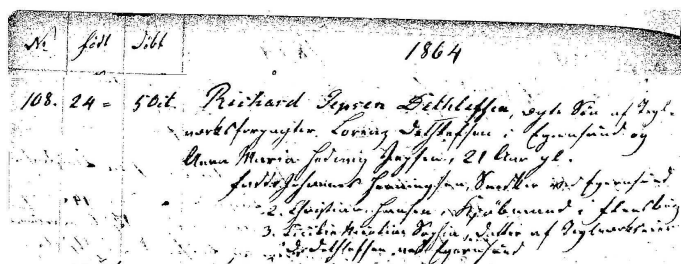 No. født Døbt
1864
108. 24 = 5 Oct. Richard Jepsen Dethlefsen, ægte Søn af Tegl-
værksforpagter Lorenz Dethlefsen i Egernsund og
Anna Maria Hedewig Jepsen, 21 Aar gl.
Fadd: Johannes Henningsen, Snedker i Egernsund
2. Christian Hansen, Kjøbmand i Flensburg
3. Sophia, Datter af Teglværkseier
Dethleffsen ved Egernsund